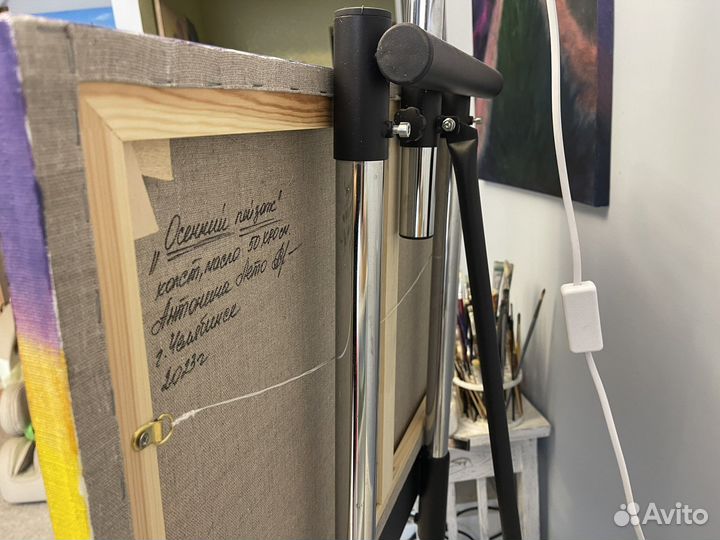 "Осенний пейзаж"
холст, масло 50х40см.
Антонина Лето
г. Челябинск
2023г
Avito